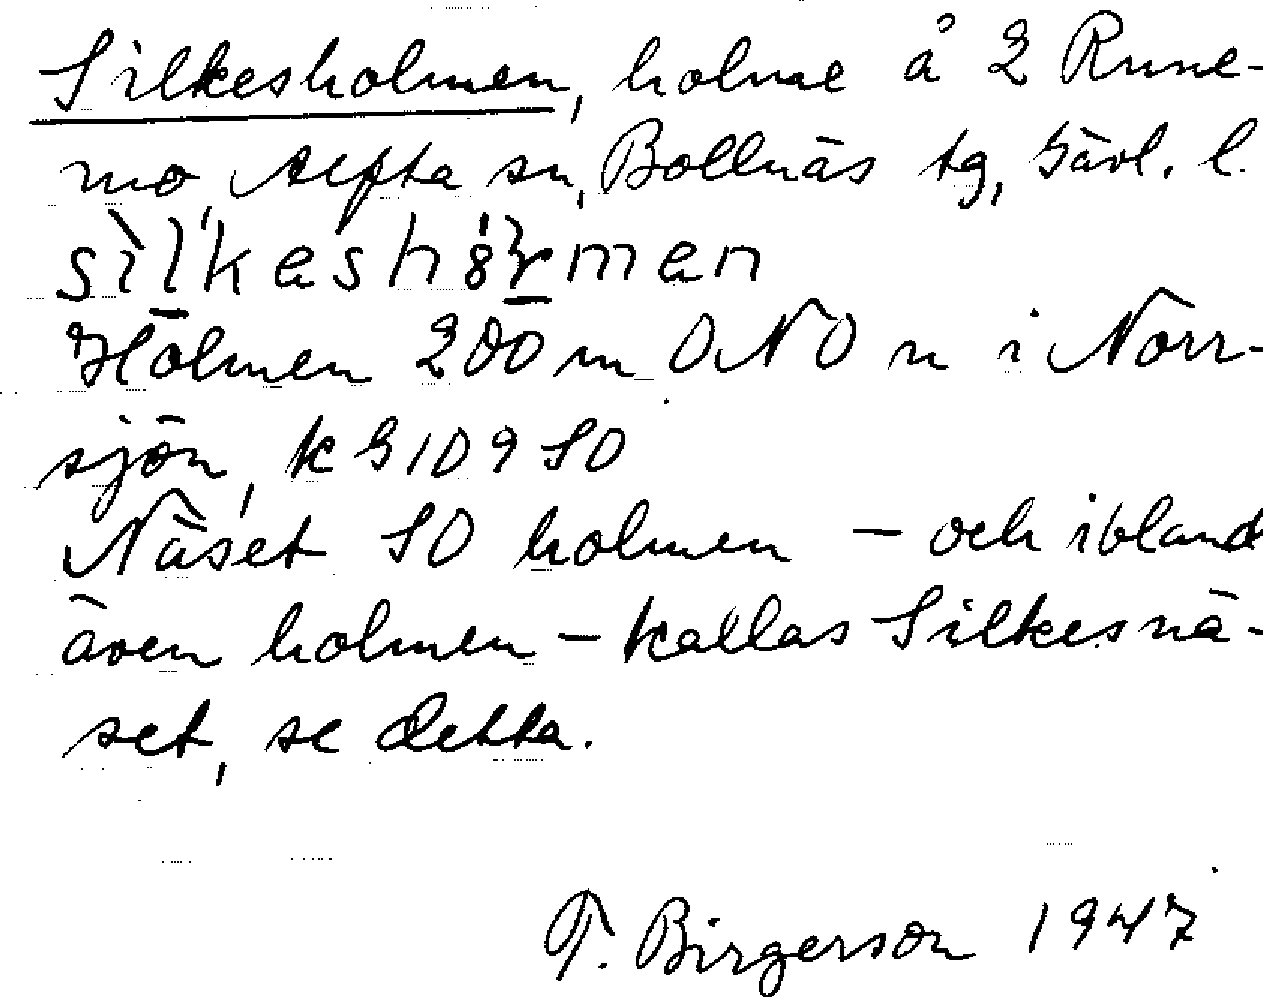 Silkesholmen, holme å 2 Rune-
mo, Alfta sn, Bollnäs tg, Gävl. l.
sìlkesh
Holmen 200 m ONO n i Norr-
sjön, k G 10 9 SO
Näset SO holmen – och ibland
även holmen – kallas Silkesnä-
set, se detta.
T. Birgerson 1947